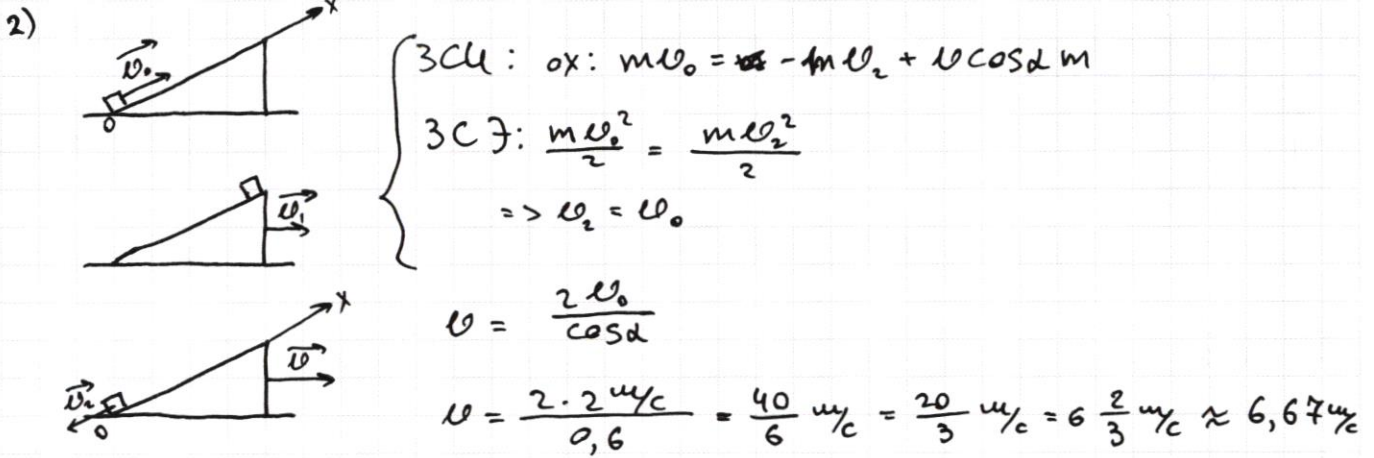 2)
x
v₀
0
ЗСИ: ox: mv₀ = -mv₂ + v cosα m
ЗСЭ: mv₀²/2 = mv₂²/2
=> v₂ = v₀
v₁
x
v
v₂
0
v = 2v₀/cosα
v = 2·2 м/с / 0,6 = 40/6 м/с = 20/3 м/с = 6 2/3 м/с ≈ 6,67 м/с